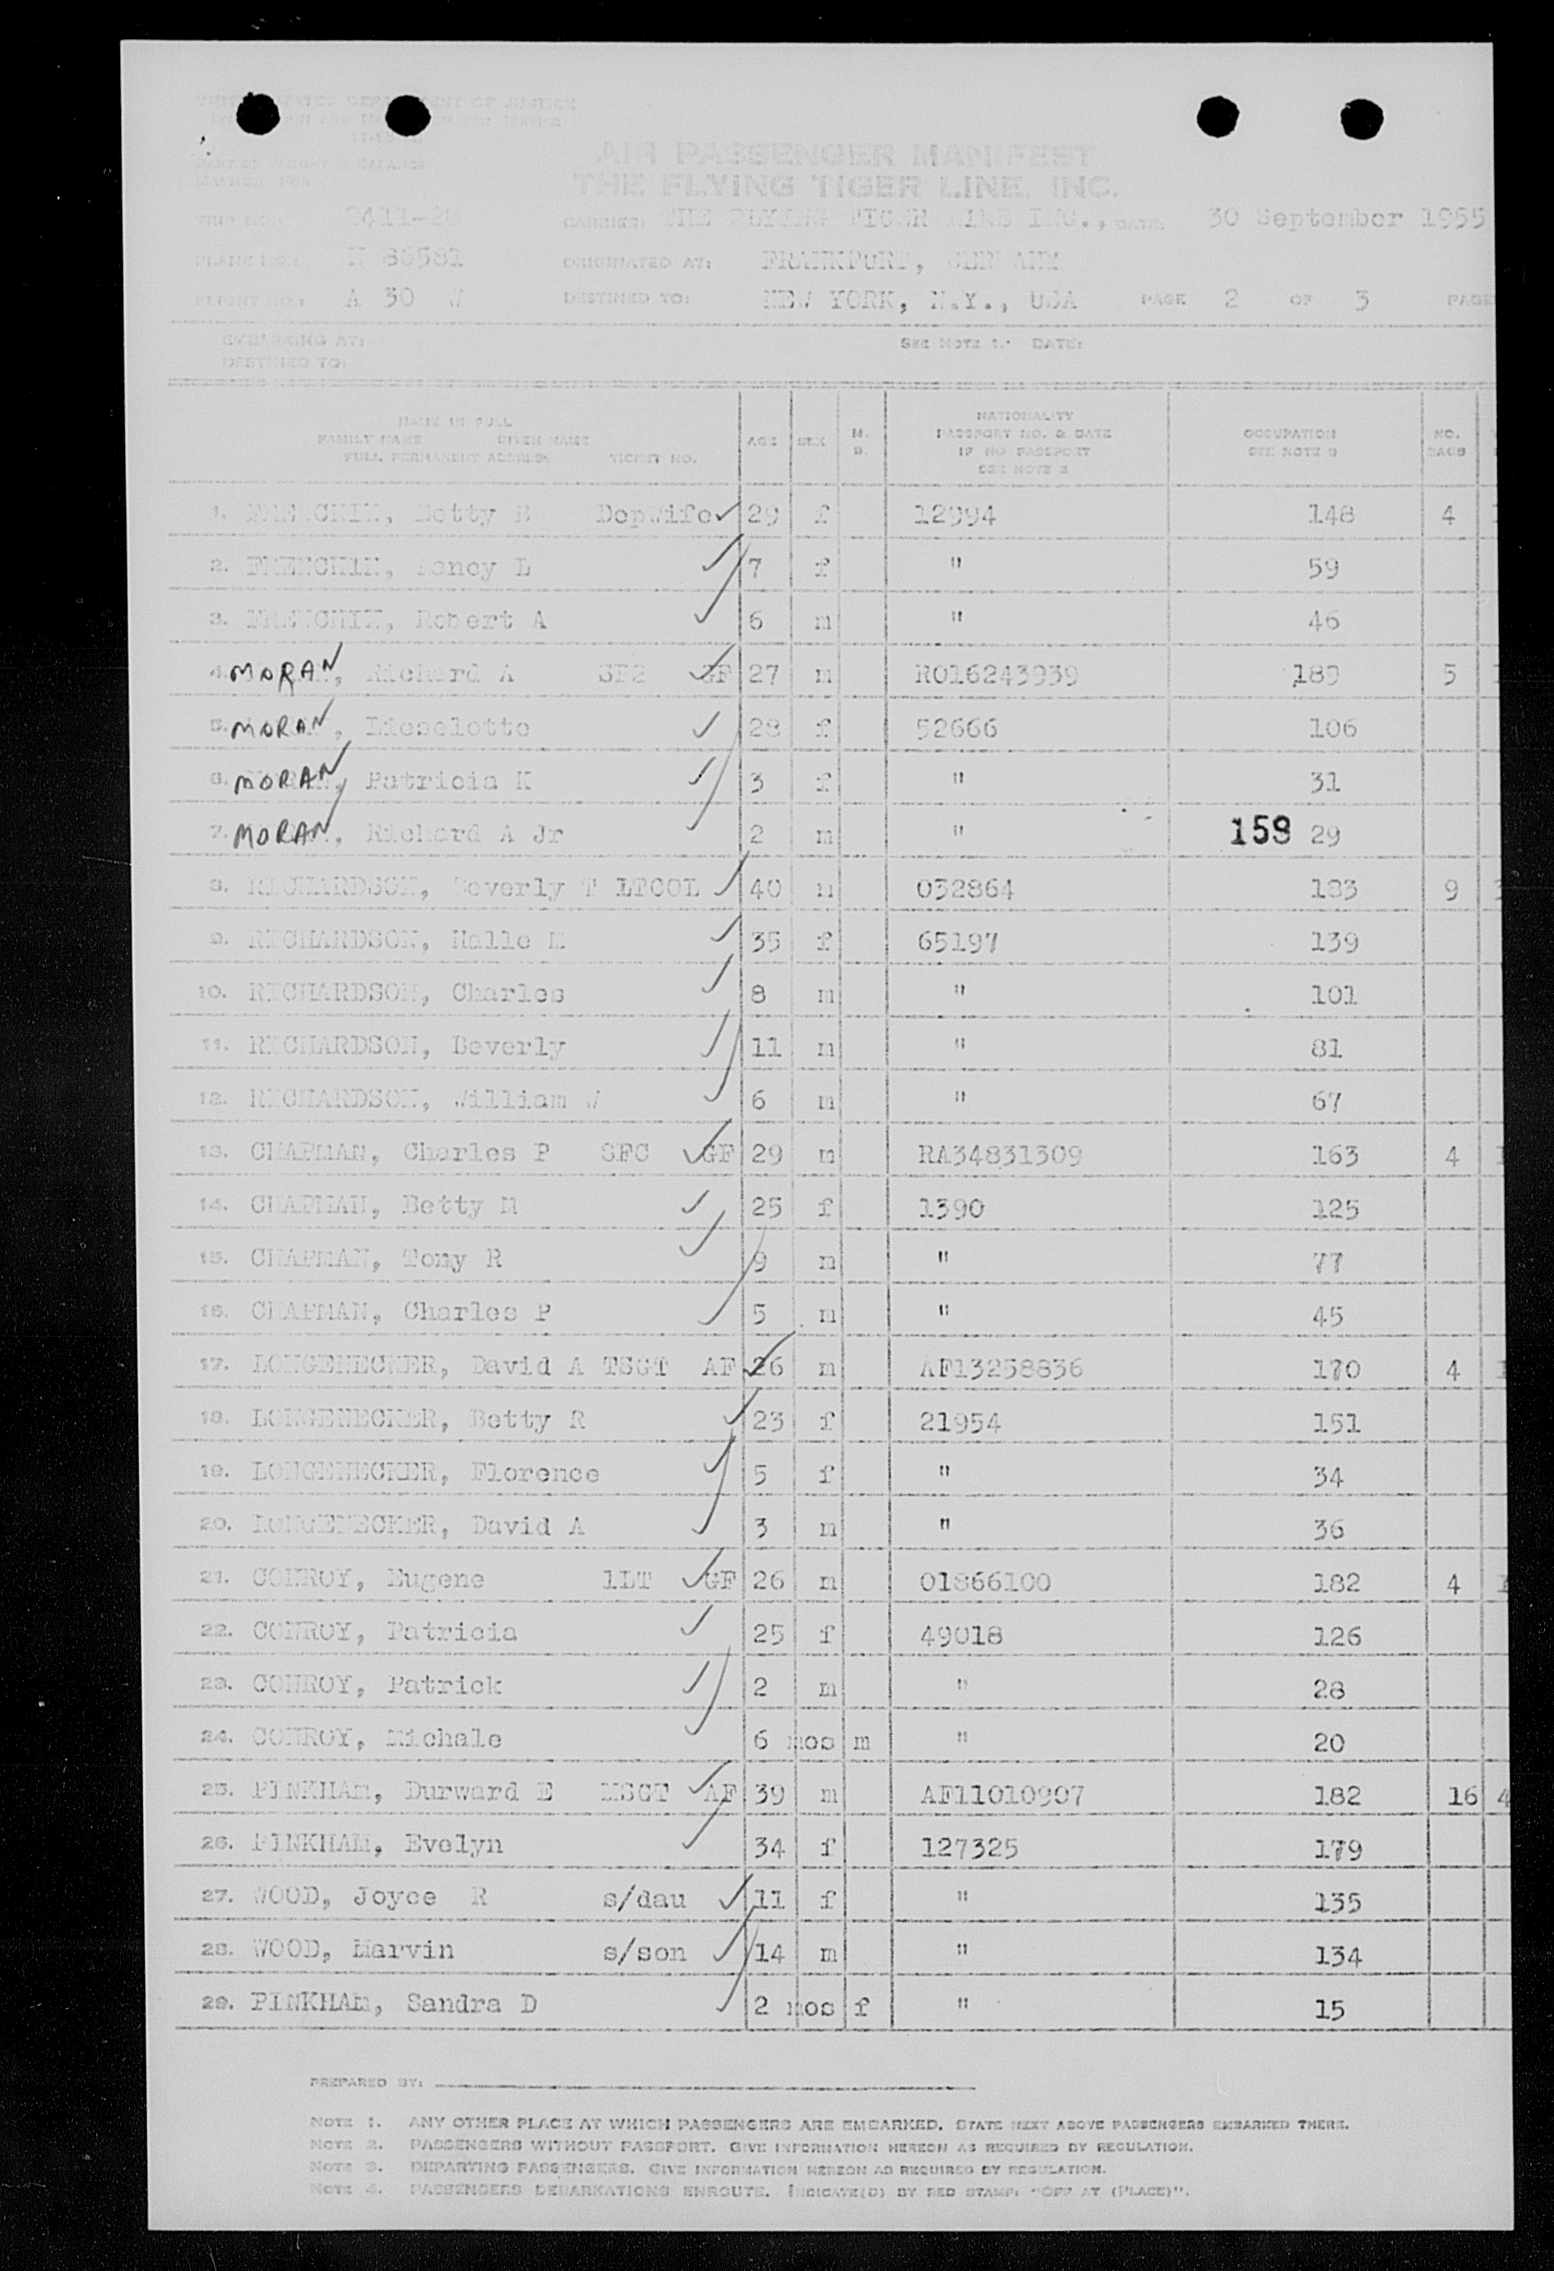 UNITED STATES DEPARTMENT OF JUSTICE
AIR PASSENGER MANIFEST
THE FLYING TIGER LINE, INC.
TRIP NO.: CARRIER: THE FLYING TIGER LINE INC., DATE: 30 September 1955
PLANE NO.: N 86581 ORIGINATED AT: FRANKFURT, GERMANY
FLIGHT NO.: A 30 W DESTINED TO: NEW YORK, N.Y., USA PAGE 2 OF 3 PAGE
EMBARKING AT: SEE NOTE 1. DATE:
DESTINED TO:
NAME IN FULL
FAMILY NAME GIVEN NAME
FULL PERMANENT ADDRESS TICKET NO.
AGE SEX
NATIONALITY
PASSPORT NO. & DATE
IF NO PASSPORT
SEE NOTE 2
OCCUPATION
SEE NOTE 3
NO.
BAGS
1. FRENCHIK, Betty B DepWife 29 f 12994 148 4
2. FRENCHIK, Nancy L 7 f " 59
3. FRENCHIK, Robert A 6 m " 46
4. MORAN, Richard A SP2 GF 27 m RO16243939 189 5
5. MORAN, Lieselotte 28 f 52666 106
6. MORAN, Patricia K 3 f " 31
7. MORAN, Richard A Jr 2 m " 159 29
8. RICHARDSON, Beverly T LTCOL 40 m 032864 183 9
9. RICHARDSON, Halle M 35 f 65197 139
10. RICHARDSON, Charles 8 m " 101
11. RICHARDSON, Beverly 11 m " 81
12. RICHARDSON, William W 6 m " 67
13. CHAPMAN, Charles P SFC GF 29 m RA34831309 163 4
14. CHAPMAN, Betty M 25 f 1390 125
15. CHAPMAN, Tony R 9 m " 77
16. CHAPMAN, Charles P 5 m " 45
17. LONGENECKER, David A TSGT AF 26 m AF13258836 170 4
18. LONGENECKER, Betty R 23 f 21954 151
19. LONGENECKER, Florence 5 f " 34
20. LONGENECKER, David A 3 m " 36
21. CONROY, Eugene 1LT GF 26 m 01866100 182 4
22. CONROY, Patricia 25 f 49018 126
23. CONROY, Patrick 2 m " 28
24. CONROY, Michale 6 mos m " 20
25. PINKHAM, Durward E MSGT AF 39 m AF11010907 182 16 4
26. PINKHAM, Evelyn 34 f 127325 179
27. WOOD, Joyce R s/dau 11 f " 135
28. WOOD, Marvin s/son 14 m " 134
29. PINKHAM, Sandra D 2 mos f " 15
PREPARED BY:
NOTE 1. ANY OTHER PLACE AT WHICH PASSENGERS ARE EMBARKED. STATE NEXT ABOVE PASSENGERS EMBARKED THERE.
NOTE 2. PASSENGERS WITHOUT PASSPORT. GIVE INFORMATION HEREON AS REQUIRED BY REGULATION.
NOTE 3. DEPARTING PASSENGERS. GIVE INFORMATION HEREON AS REQUIRED BY REGULATION.
NOTE 4. PASSENGERS DEBARKATIONS ENROUTE. INDICATE(D) BY RED STAMP: "OFF AT (PLACE)".